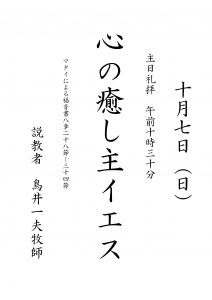 十月七日（日）
主日礼拝　午前十時三十分
心の癒し主イエス
マタイによる福音書八章二十八節－三十四節
説教者　鳥井一夫牧師